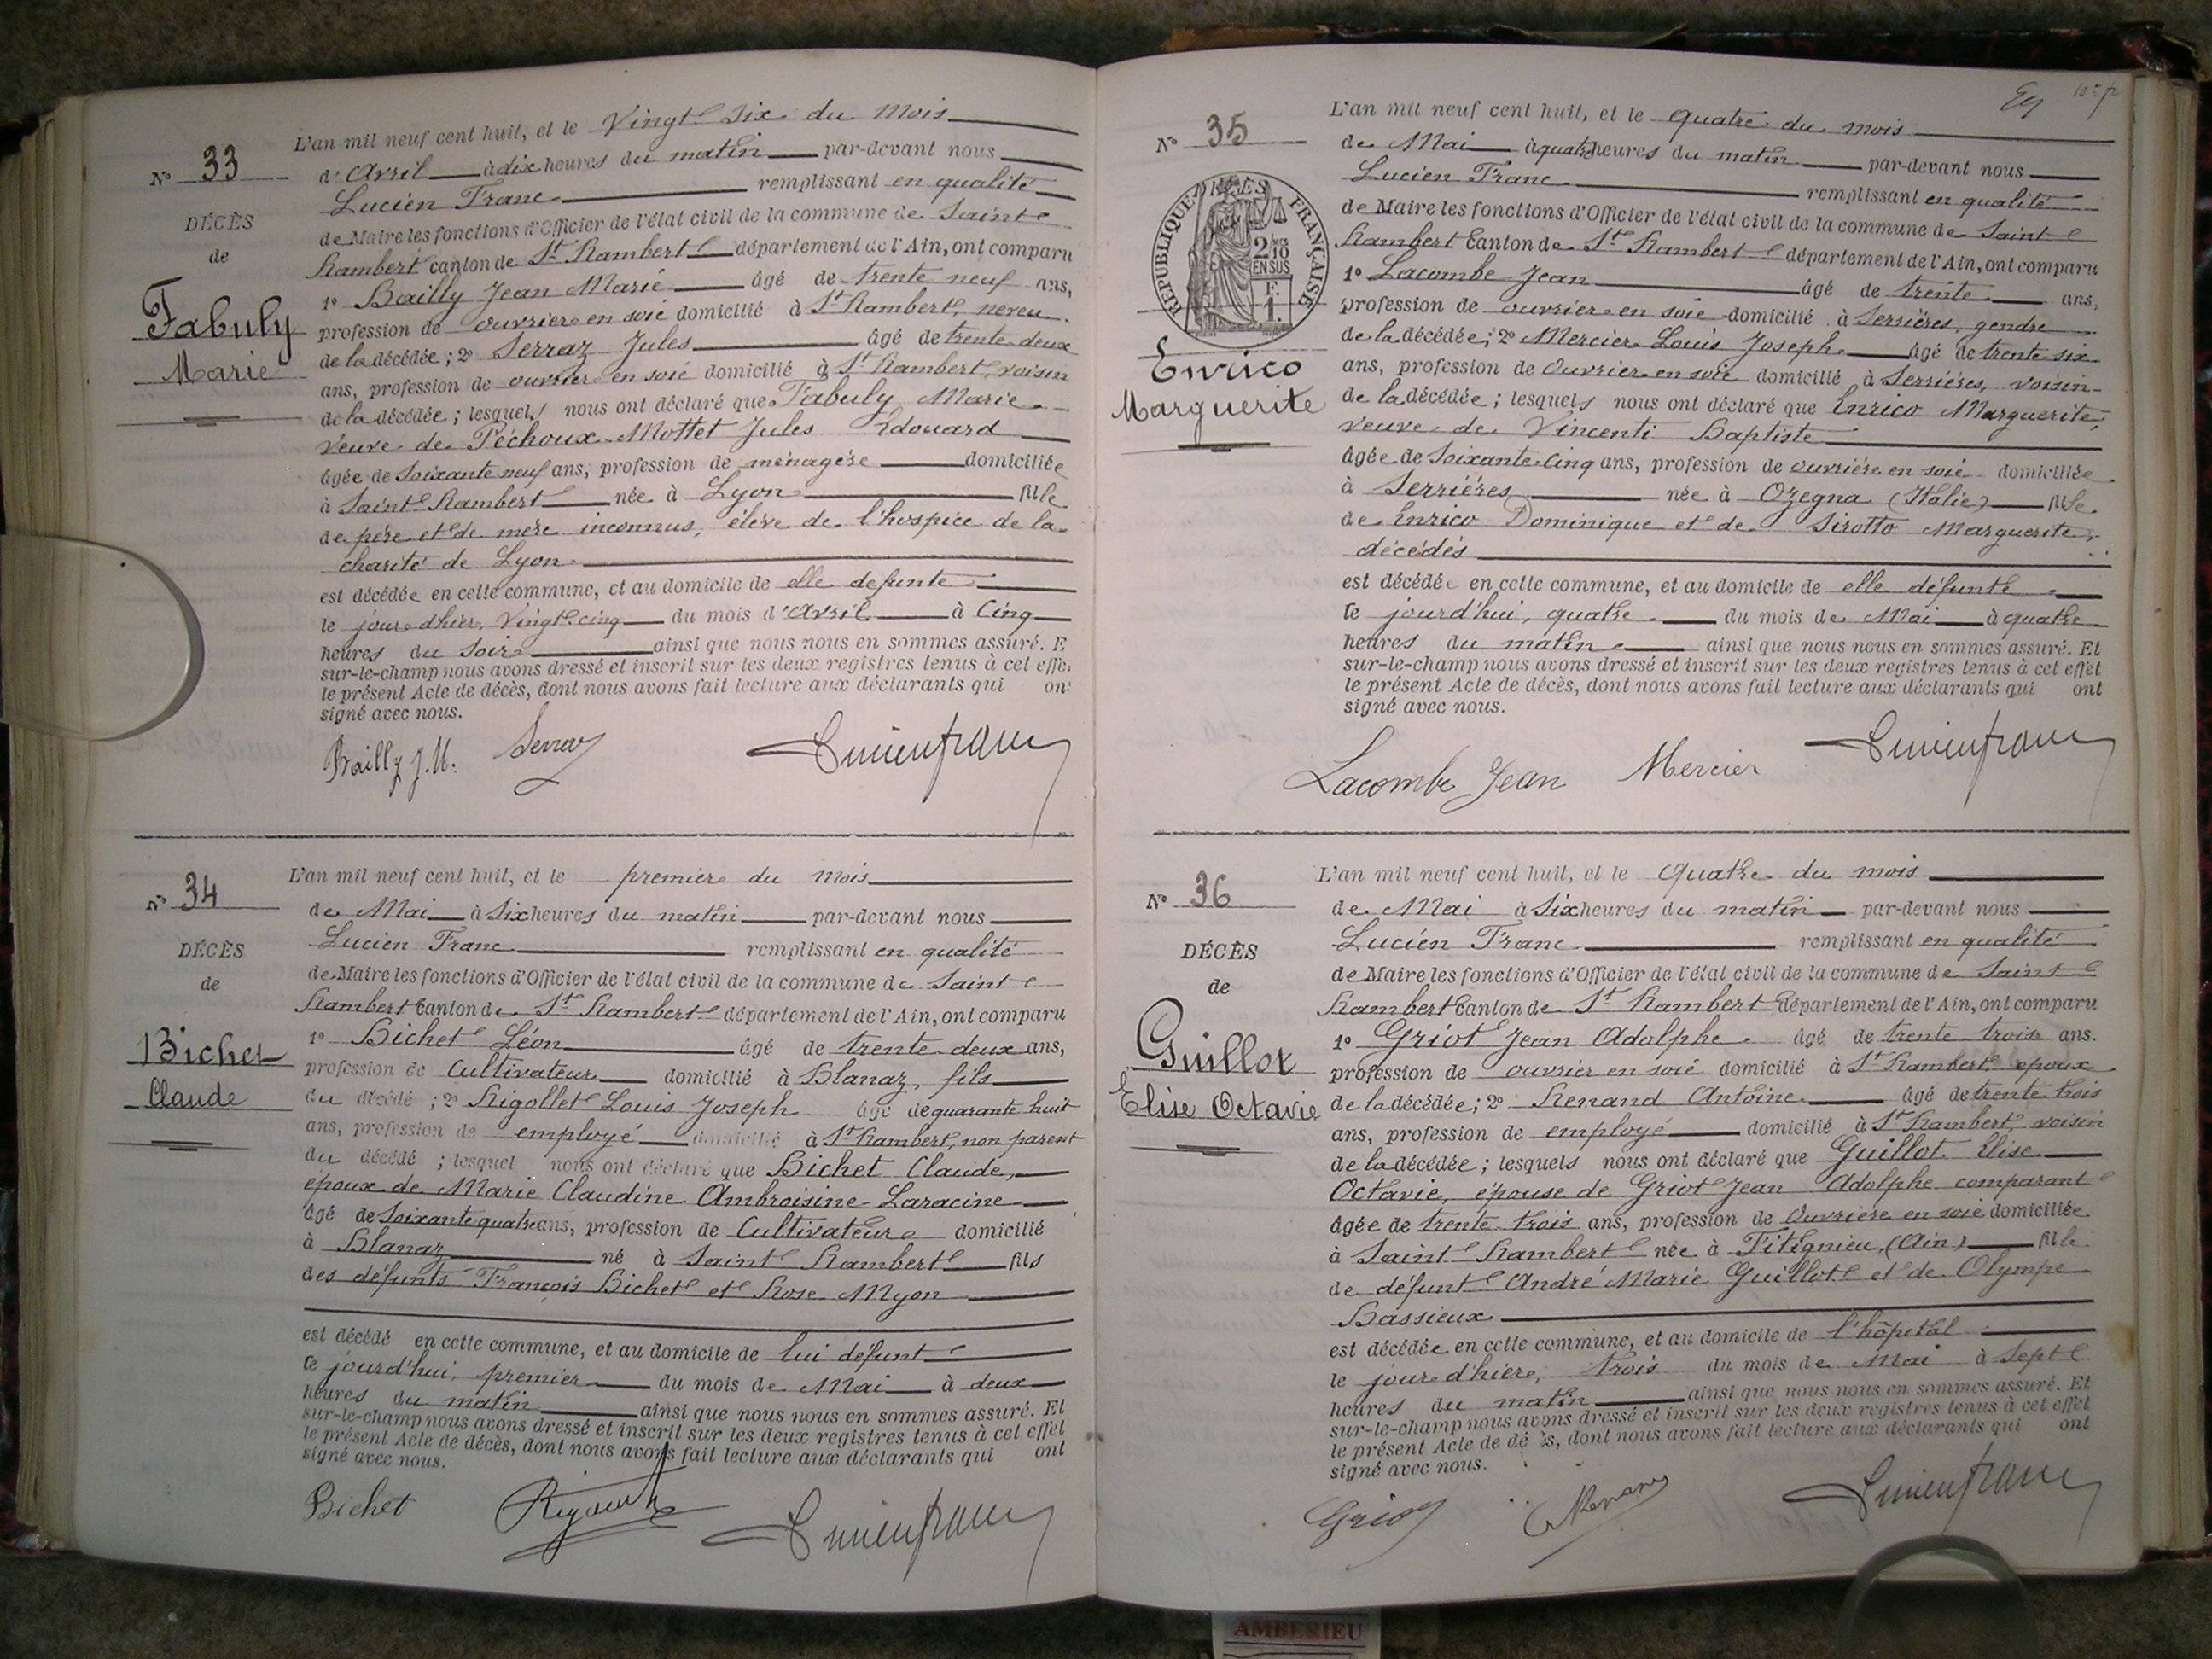 L'an mil neuf cent huit, et le Vingt six du mois
N° 33
d'Avril à dix heures du matin par-devant nous
Lucien Franc remplissant en qualité
DÉCÈS
de Maire les fonctions d'Officier de l'état civil de la commune de Saint
de
Rambert canton de St Rambert département de l'Ain, ont comparu
1° Bailly Jean Marie âgé de trente neuf ans,
Fabuly
profession de ouvrier en soie domicilié à St Rambert, neveu
de la décédée ; 2° Serraz Jules âgé de trente deux
Marie
ans, profession de ouvrier en soie domicilié à St Rambert, voisin
de la décédée ; lesquels nous ont déclaré que Fabuly Marie
veuve de Péchoux-Mottet Jules Edouard
âgée de soixante neuf ans, profession de ménagère domiciliée
à Saint Rambert née à Lyon fille
de père et de mère inconnus, élève de l'hospice de la
charité de Lyon
est décédée en cette commune, et au domicile de elle defunte
le jour d'hier, vingt cinq du mois d'Avril à Cinq
heures du soir ainsi que nous nous en sommes assuré. E
sur-le-champ nous avons dressé et inscrit sur les deux registres tenus à cet effe
le présent Acte de décès, dont nous avons fait lecture aux déclarants qui on
signé avec nous.
Bailly J.M. Serraz Lucien franc
L'an mil neuf cent huit, et le premier du mois
N° 34
de Mai à Six heures du matin par-devant nous
Lucien Franc remplissant en qualité
DÉCÈS
de Maire les fonctions d'Officier de l'état civil de la commune de Saint
de
Rambert Canton de St Rambert département de l'Ain, ont comparu
1° Bichet Léon âgé de trente deux ans,
Bichet
profession de Cultivateur domicilié à Blanaz, fils
Claude
du décédé ; 2° Rigollet Louis Joseph âgé de quarante huit
ans, profession de employé domicilié à St Rambert, non parent
du décédé ; lesquel nous ont déclaré que Bichet Claude,
époux de Marie Claudine Ambroisine Laracine
âgé de Soixante quatre ans, profession de Cultivateur domicilié
à Blanaz né à Saint Rambert fils
des défunts François Bichet et Rose Myon
est décédé en cette commune, et au domicile de lui défunt
le jourd'hui, premier du mois de Mai à deux
heures du matin ainsi que nous nous en sommes assuré. Et
sur-le-champ nous avons dressé et inscrit sur les deux registres tenus à cet effet
le présent Acte de décès, dont nous avons fait lecture aux déclarants qui ont
signé avec nous.
Bichet Lucien franc
10e f
L'an mil neuf cent huit, et le quatre du mois
N° 35
de Mai à quatre heures du matin par-devant nous
Lucien Franc remplissant en qualité
RÉPUBLIQUE FRANÇAISE
2/10 EN SUS
F. 1.
de Maire les fonctions d'Officier de l'état civil de la commune de Saint
Rambert Canton de St Rambert département de l'Ain, ont comparu
1° Lacombe Jean âgé de trente ans,
profession de ouvrier en soie domicilié à Serrières, gendre
de la décédée ; 2° Mercier Louis Joseph âgé de trente six
Enrico
ans, profession de Ouvrier en soie domicilié à Serrières, voisin
Marguerite
de la décédée ; lesquels nous ont déclaré que Enrico Marguerite,
veuve de Vincenti Baptiste
âgée de Soixante Cinq ans, profession de ouvrière en soie domiciliée
à Serrières née à Ozegna (Italie) fille
de Enrico Dominique et de Sirotto Marguerite,
décédés
est décédée en cette commune, et au domicile de elle défunte
le jourd'hui, quatre du mois de Mai à quatre
heures du matin ainsi que nous nous en sommes assuré. Et
sur-le-champ nous avons dressé et inscrit sur les deux registres tenus à cet effet
le présent Acte de décès, dont nous avons fait lecture aux déclarants qui ont
signé avec nous.
Lacombe Jean Mercier Lucien franc
L'an mil neuf cent huit, et le quatre du mois
N° 36
de Mai à Six heures du matin par-devant nous
Lucien Franc remplissant en qualité
DÉCÈS
de Maire les fonctions d'Officier de l'état civil de la commune de Saint
de
Rambert Canton de St Rambert département de l'Ain, ont comparu
1° Griot Jean Adolphe âgé de trente trois ans.
Guillot
profession de ouvrier en soie domicilié à St Rambert époux
Elise Octavie
de la décédée ; 2° Renand Antoine âgé de trente trois
ans, profession de employé domicilié à St Rambert, voisin
de la décédée ; lesquels nous ont déclaré que Guillot Elise
Octavie, épouse de Griot Jean Adolphe comparant
âgée de trente trois ans, profession de Ouvrière en soie domiciliée
à Saint Rambert née à Titignieu, (Ain) fille
de défunt André Marie Guillot et de Olympe
Bassieux
est décédée en cette commune, et au domicile de l'hôpital
le jour d'hier, trois du mois de Mai à Sept
heures du matin ainsi que nous nous en sommes assuré. Et
sur-le-champ nous avons dressé et inscrit sur les deux registres tenus à cet effet
le présent Acte de dé ès, dont nous avons fait lecture aux déclarants qui ont
signé avec nous.
Griot Renand Lucien franc
AMBERIEU